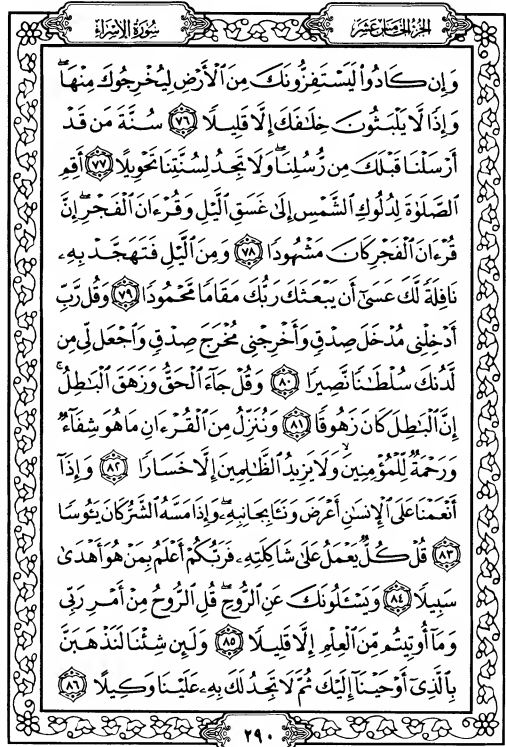 سُورَةُ الإِسْرَاءِ
الجُزْءُ الخَامِسَ عَشَرَ
وَإِن كَادُواْ لَيَسْتَفِزُّونَكَ مِنَ ٱلْأَرْضِ لِيُخْرِجُوكَ مِنْهَاۖ
وَإِذًا لَّا يَلْبَثُونَ خِلَٰفَكَ إِلَّا قَلِيلًا ٧٦ سُنَّةَ مَن قَدْ
أَرْسَلْنَا قَبْلَكَ مِن رُّسُلِنَاۖ وَلَا تَجِدُ لِسُنَّتِنَا تَحْوِيلًا ٧٧ أَقِمِ
ٱلصَّلَوٰةَ لِدُلُوكِ ٱلشَّمْسِ إِلَىٰ غَسَقِ ٱلَّيْلِ وَقُرْءَانَ ٱلْفَجْرِۖ إِنَّ
قُرْءَانَ ٱلْفَجْرِ كَانَ مَشْهُودًا ٧٨ وَمِنَ ٱلَّيْلِ فَتَهَجَّدْ بِهِۦ
نَافِلَةً لَّكَ عَسَىٰٓ أَن يَبْعَثَكَ رَبُّكَ مَقَامًا مَّحْمُودًا ٧٩ وَقُل رَّبِّ
أَدْخِلْنِى مُدْخَلَ صِدْقٍ وَأَخْرِجْنِى مُخْرَجَ صِدْقٍ وَٱجْعَل لِّى مِن
لَّدُنكَ سُلْطَٰنًا نَّصِيرًا ٨٠ وَقُلْ جَآءَ ٱلْحَقُّ وَزَهَقَ ٱلْبَٰطِلُۚ
إِنَّ ٱلْبَٰطِلَ كَانَ زَهُوقًا ٨١ وَنُنَزِّلُ مِنَ ٱلْقُرْءَانِ مَا هُوَ شِفَآءٌ
وَرَحْمَةٌ لِّلْمُؤْمِنِينَۙ وَلَا يَزِيدُ ٱلظَّٰلِمِينَ إِلَّا خَسَارًا ٨٢ وَإِذَآ
أَنْعَمْنَا عَلَى ٱلْإِنسَٰنِ أَعْرَضَ وَنَـَٔا بِجَانِبِهِۦۖ وَإِذَا مَسَّهُ ٱلشَّرُّ كَانَ يَـُٔوسًا
٨٣ قُلْ كُلٌّ يَعْمَلُ عَلَىٰ شَاكِلَتِهِۦ فَرَبُّكُمْ أَعْلَمُ بِمَنْ هُوَ أَهْدَىٰ
سَبِيلًا ٨٤ وَيَسْـَٔلُونَكَ عَنِ ٱلرُّوحِۖ قُلِ ٱلرُّوحُ مِنْ أَمْرِ رَبِّى
وَمَآ أُوتِيتُم مِّنَ ٱلْعِلْمِ إِلَّا قَلِيلًا ٨٥ وَلَئِن شِئْنَا لَنَذْهَبَنَّ
بِٱلَّذِىٓ أَوْحَيْنَآ إِلَيْكَ ثُمَّ لَا تَجِدُ لَكَ بِهِۦ عَلَيْنَا وَكِيلًا ٨٦
٢٩٠